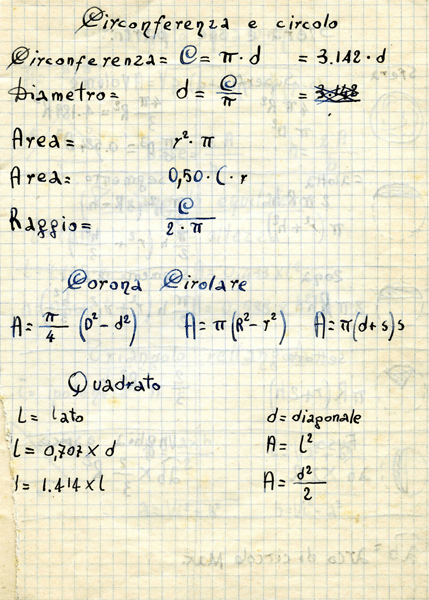 Circonferenza e circolo
Circonferenza = C = π · d = 3.142 · d
Diametro = d = C/π =
Area = r² · π
Area = 0,50 · C · r
Raggio = C / 2 · π
Corona Cirolare
A = π/4 (D² - d²) A = π (R² - r²) A = π (d + s) s
Quadrato
L = lato d = diagonale
l = 0,707 × d A = l²
l = 1.414 × l A = d²/2